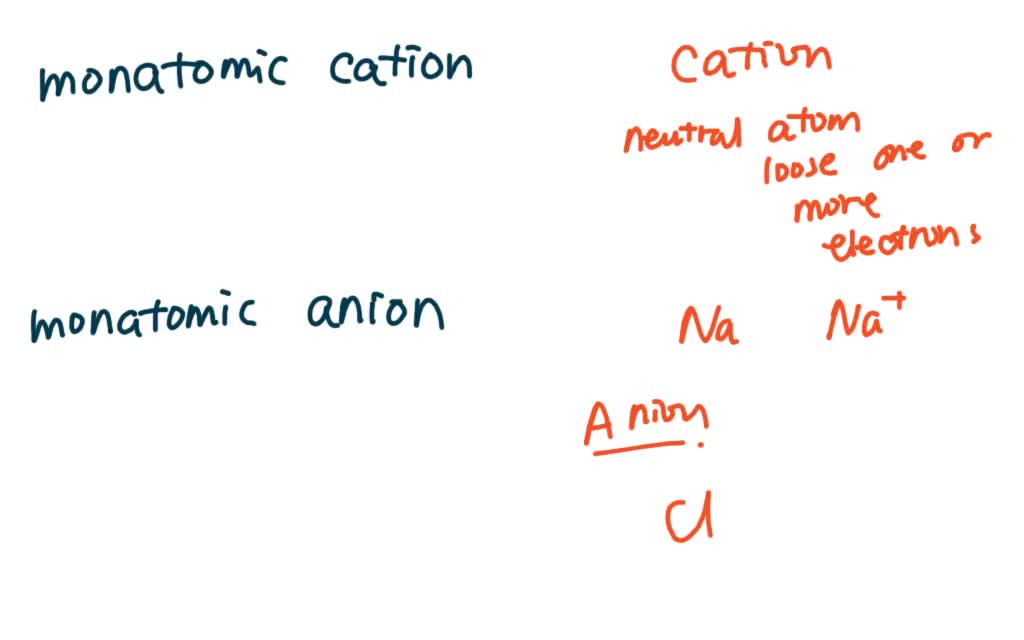 monatomic cation
Cation
neutral atom
loose one or
more
electrons
monatomic anion
Na Na⁺
Anion.
Cl